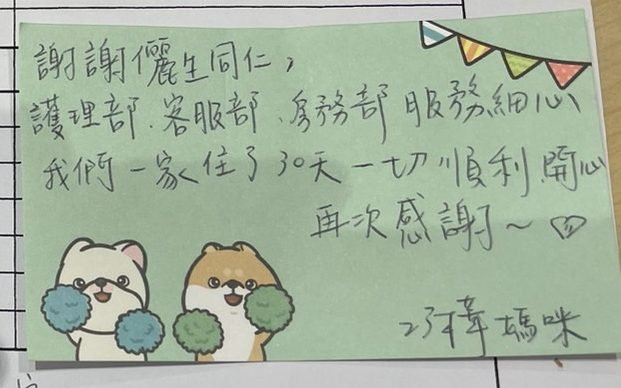 謝謝儷生同仁,
護理部、客服部、房務部 服務細心
我們一家住了30天一切順利開心
再次感謝~♡
媽咪